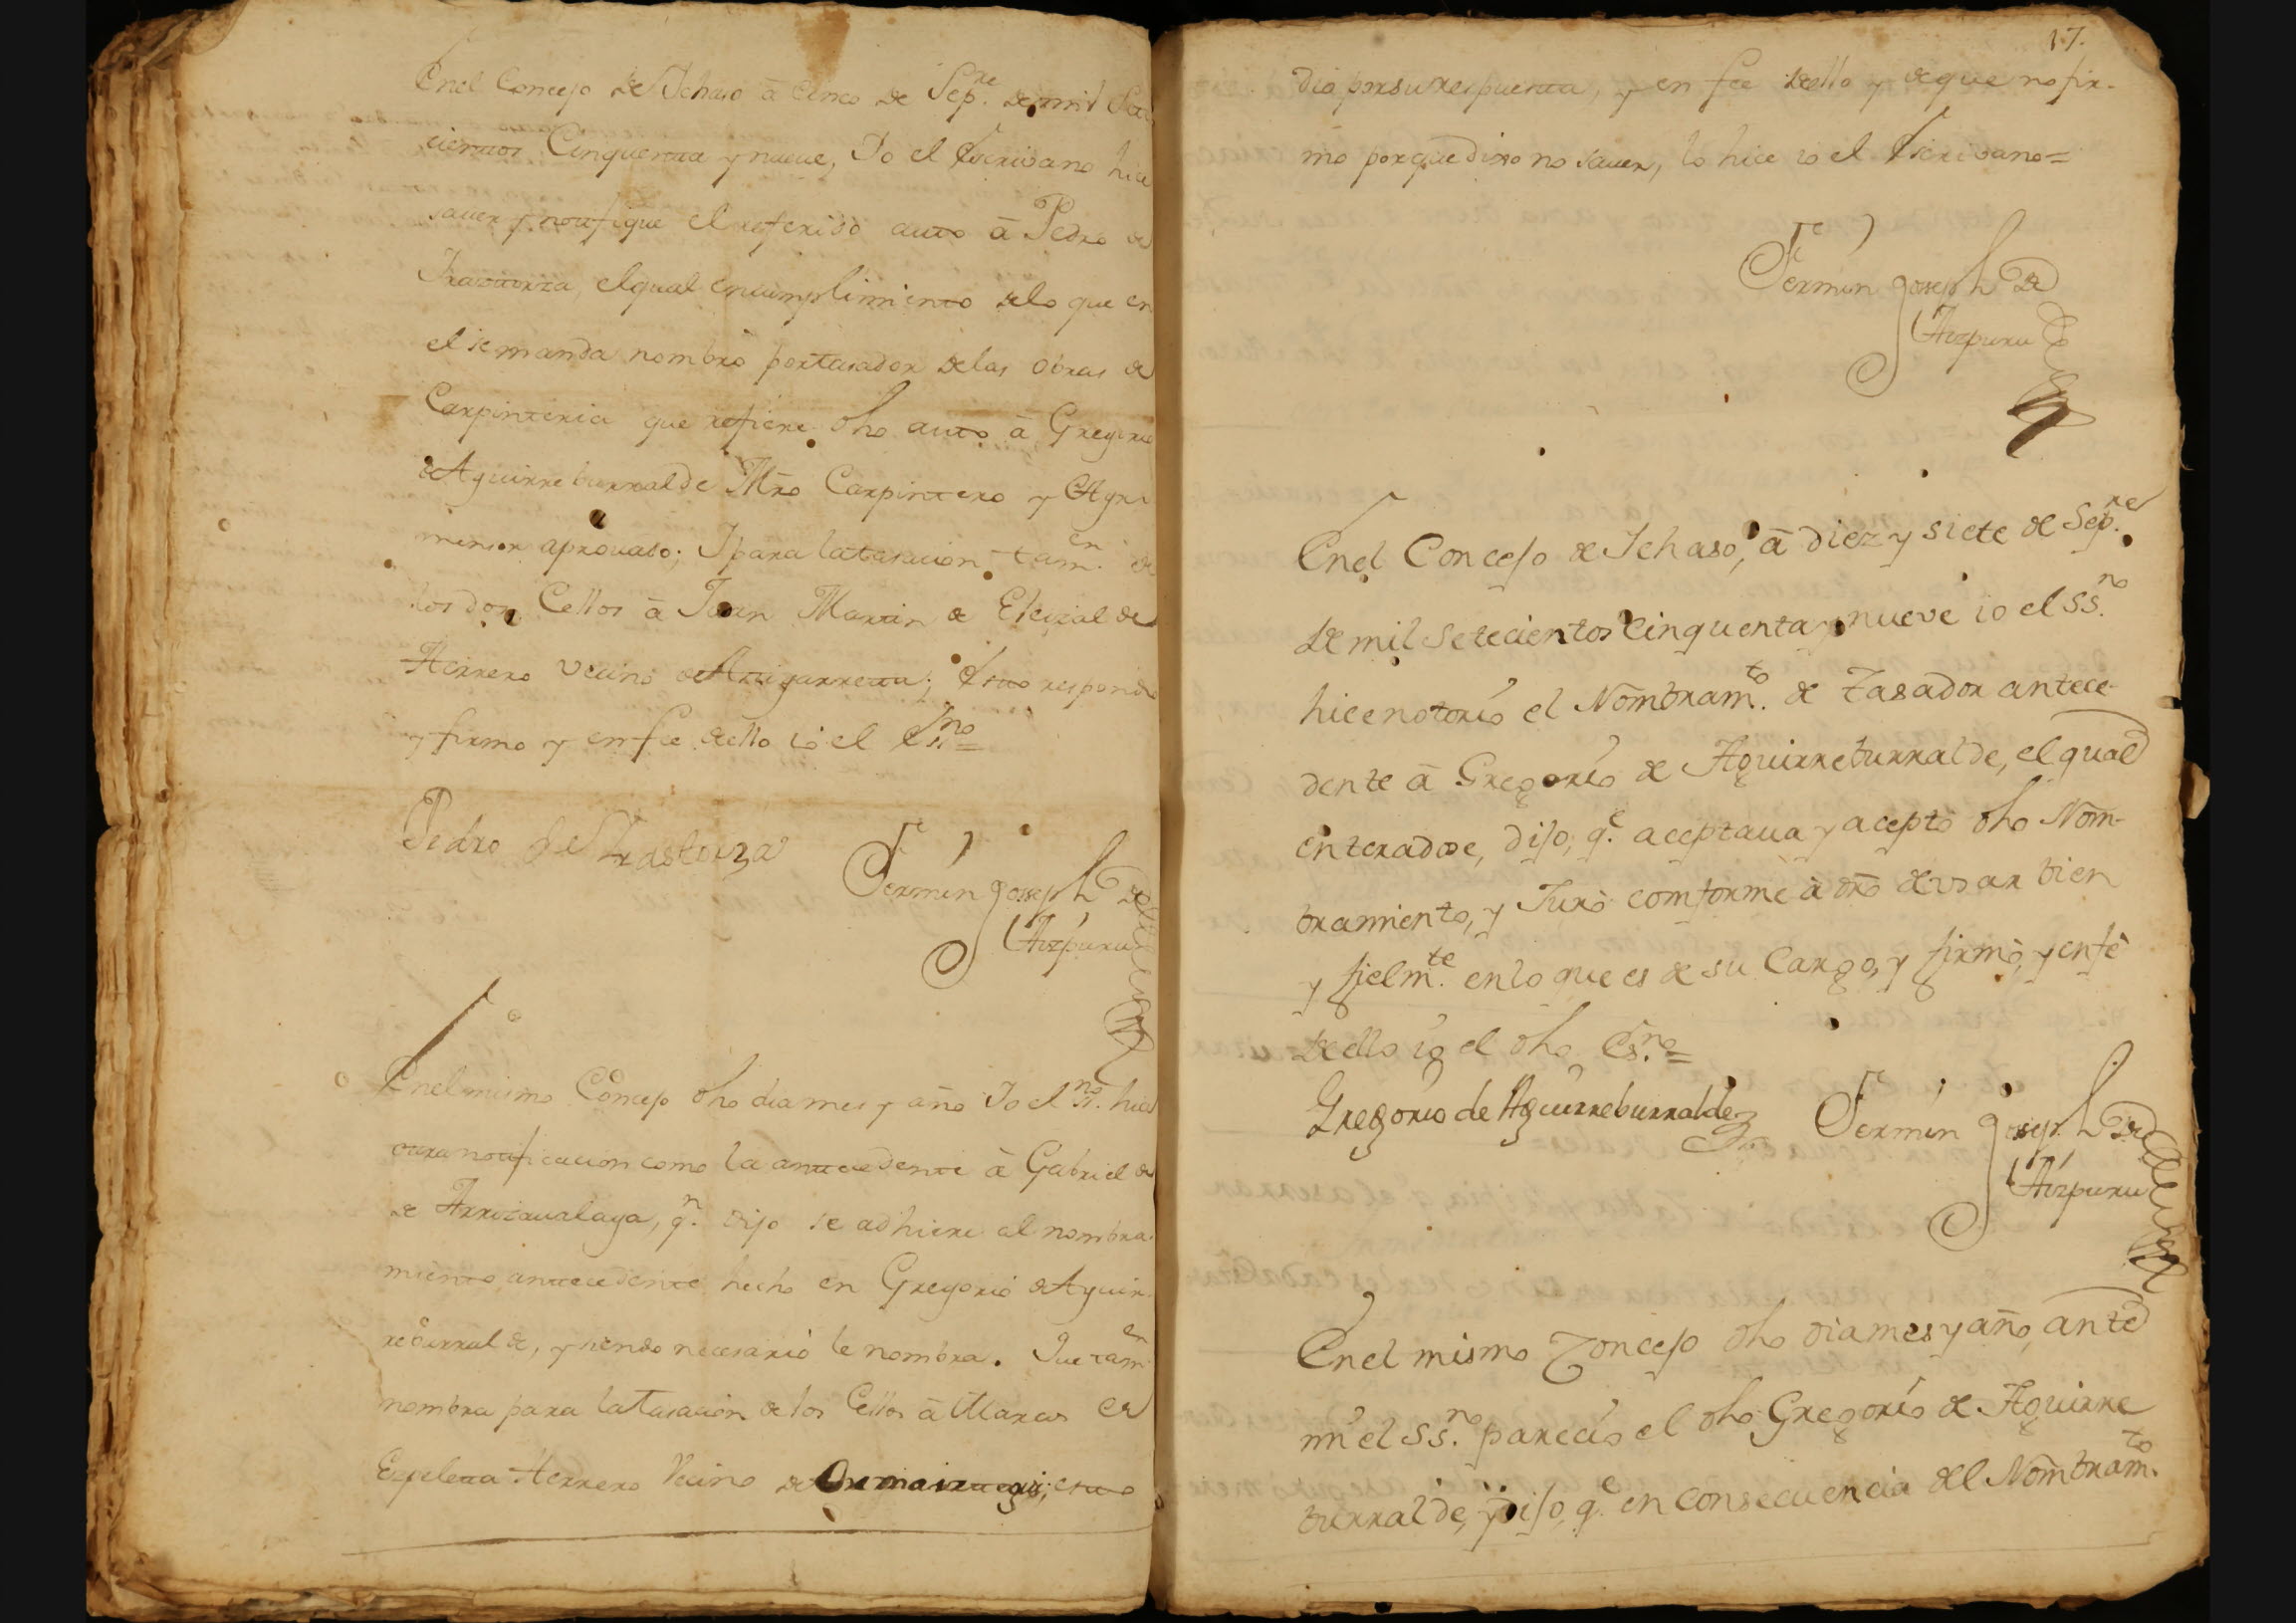 En el Concejo de Ychaso â cinco de Sepre. de mil Sete
cientos Cinquenta y nueve, Yo el Escrivano hice
saver y notifique el referido auto â Pedro de
Yrastorza, el qual en cumplimiento de lo que en
el se manda nombró por tasador de las obras de
Carpinteria que refiere dho auto â Gregorio
de Aguirreburralde Mro Carpintero y Agri
mensor aprovado; Y para la tasacion tamen. de
los dos Cellos â Juan Martin de Eleizalde
Herrero vecino de Astigarreta; Esto respondio
y firmo y en fee dello io el Esno=
Pedro de Yrastorza
Fermin Joseph de
Aizpuru
En el mismo Concejo dho dia mes y año Yo el ssno. hice
otra notificacion como la antecedente â Gabriel de
de Arrizavalaga, qn. dijo se adhiere al nombra
miento antecedente hecho en Gregorio de Aguir
reburralde, y siendo necesario le nombra. Que tamen
nombra para la Tasacion de los Cellos â Marcos de
Ezpeleta Herrero Vecino de Ormaiztegui; esto
17.
dio por su respuesta, y en fee dello y de que no fir-
mo porque dixo no saver, lo hice io el Escrivano=
Fermin Joseph de
Aizpuru
En el Concejo de Ychaso, â diez y siete de Sepre.
de mil setecientos cinquenta y nueve io el SSno.
hice notorio el Nombramto. de Tasador antece-
dente â Gregorio de Aguirreburralde, el qual
enteradose, dijo, qe. aceptava y aceptó dho Nom-
bramiento, y Juró comforme à dro de usar bien
y fielmte. en lo que es de su Cargo, y firmó, y en fé
de ello io el dho Esno.=
Gregorio de Aguirreburralde
Fermin Joseph de
Aizpuru
En el mismo Concejo dho dia mes y año, ante
mi el SSno. parecio el dho Gregorio de Aguirre
burralde, y dijo, qe. en consecuencia del Nombramto.